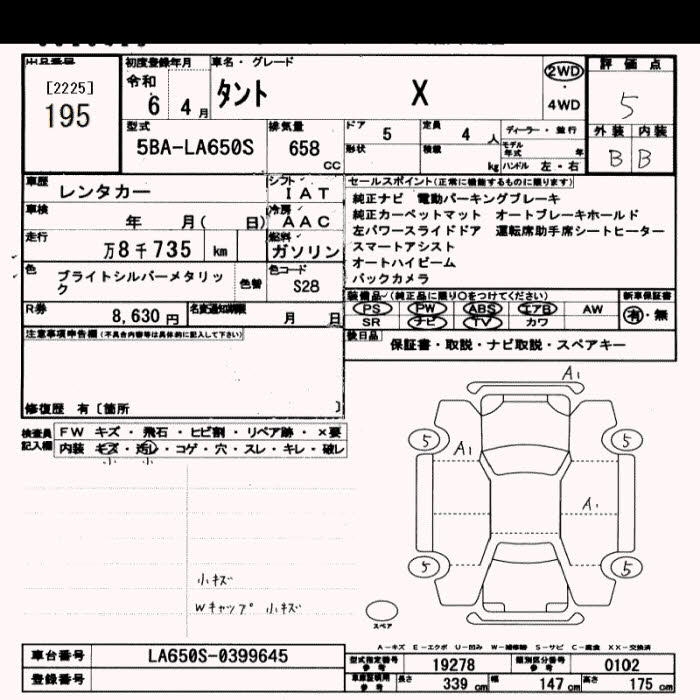 初度登録年月 車名・グレード 評価点
[2225] 令和 タント X 2WD 5
195 6 4月 ・ 4WD
型式 排気量 ドア 5 定員 4人 ディーラー・並行 外装 内装
5BA-LA650S 658 cc 形状 積載 kg モデル年式 年 B B
ハンドル 左・右
車歴 レンタカー シフト IAT
車検 年 月( 日) 冷房 AAC
走行 万8千735 km 燃料 ガソリン
色 ブライトシルバーメタリック 色替 色コード S28
R券 8,630円 名変通知期限 月 日
セールスポイント(正常に機能するものに限ります)
純正ナビ 電動パーキングブレーキ
純正カーペットマット オートブレーキホールド
左パワースライドドア 運転席助手席シートヒーター
スマートアシスト
オートハイビーム
バックカメラ
装備品(純正品に限り○をつけてください) 新車保証書
PS PW ABS エアB AW 有・無
SR ナビ TV カワ
後日品 保証書・取説・ナビ取説・スペアキー
注意事項申告欄(不具合内容等は具体的に記入して下さい)
修復歴 有〔箇所 〕
検査員記入欄 FW キズ・飛石・ヒビ割・リペア跡・×要
内装 キズ・汚レ・コゲ・穴・スレ・キレ・破レ
小 小
A1
5 A1 5
A1
5 5
小キズ
Wキャップ 小キズ
スペア
A-キズ E-エクボ U-凹み W-補修跡 S-サビ C-腐食 XX-交換済
車台番号 LA650S-0399645
登録番号
型式指定番号参考 19278 類別区分番号参考 0102
車庫証明用参考 長さ 339cm 幅 147cm 高さ 175cm